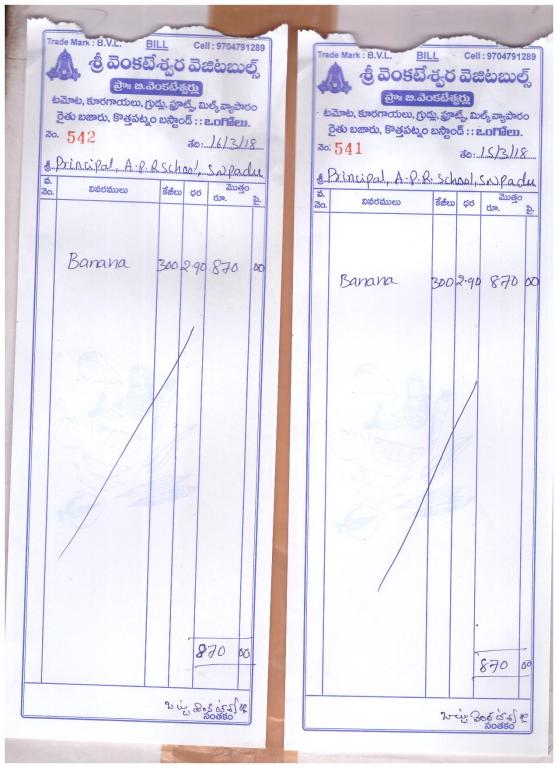 Trade Mark : B.V.L. BILL Cell : 9704791289
శ్రీ వెంకటేశ్వర వెజిటబుల్స్
ప్రొః బి.వెంకటేశ్వర్లు
టమోట, కూరగాయలు, గ్రుడ్లు, ఫ్రూట్స్, మిల్క్ వ్యాపారం
రైతు బజారు, కొత్తపట్నం బస్టాండ్ : : ఒంగోలు.
నెం. 542 తేది: 16/3/18
శ్రీ Principal, A.P.R School, S.N.padu
వ. నెం. వివరములు కేజీలు ధర మొత్తం రూ. పై.
Banana 300 2.90 870 00
870 00
సంతకం
Trade Mark : B.V.L. BILL Cell : 9704791289
శ్రీ వెంకటేశ్వర వెజిటబుల్స్
ప్రొః బి.వెంకటేశ్వర్లు
టమోట, కూరగాయలు, గ్రుడ్లు, ఫ్రూట్స్, మిల్క్ వ్యాపారం
రైతు బజారు, కొత్తపట్నం బస్టాండ్ : : ఒంగోలు.
నెం. 541 తేది: 15/3/18
శ్రీ Principal, A.P.R. School, S.N.padu
వ. నెం. వివరములు కేజీలు ధర మొత్తం రూ. పై.
Banana 300 2.90 870 00
870 00
సంతకం